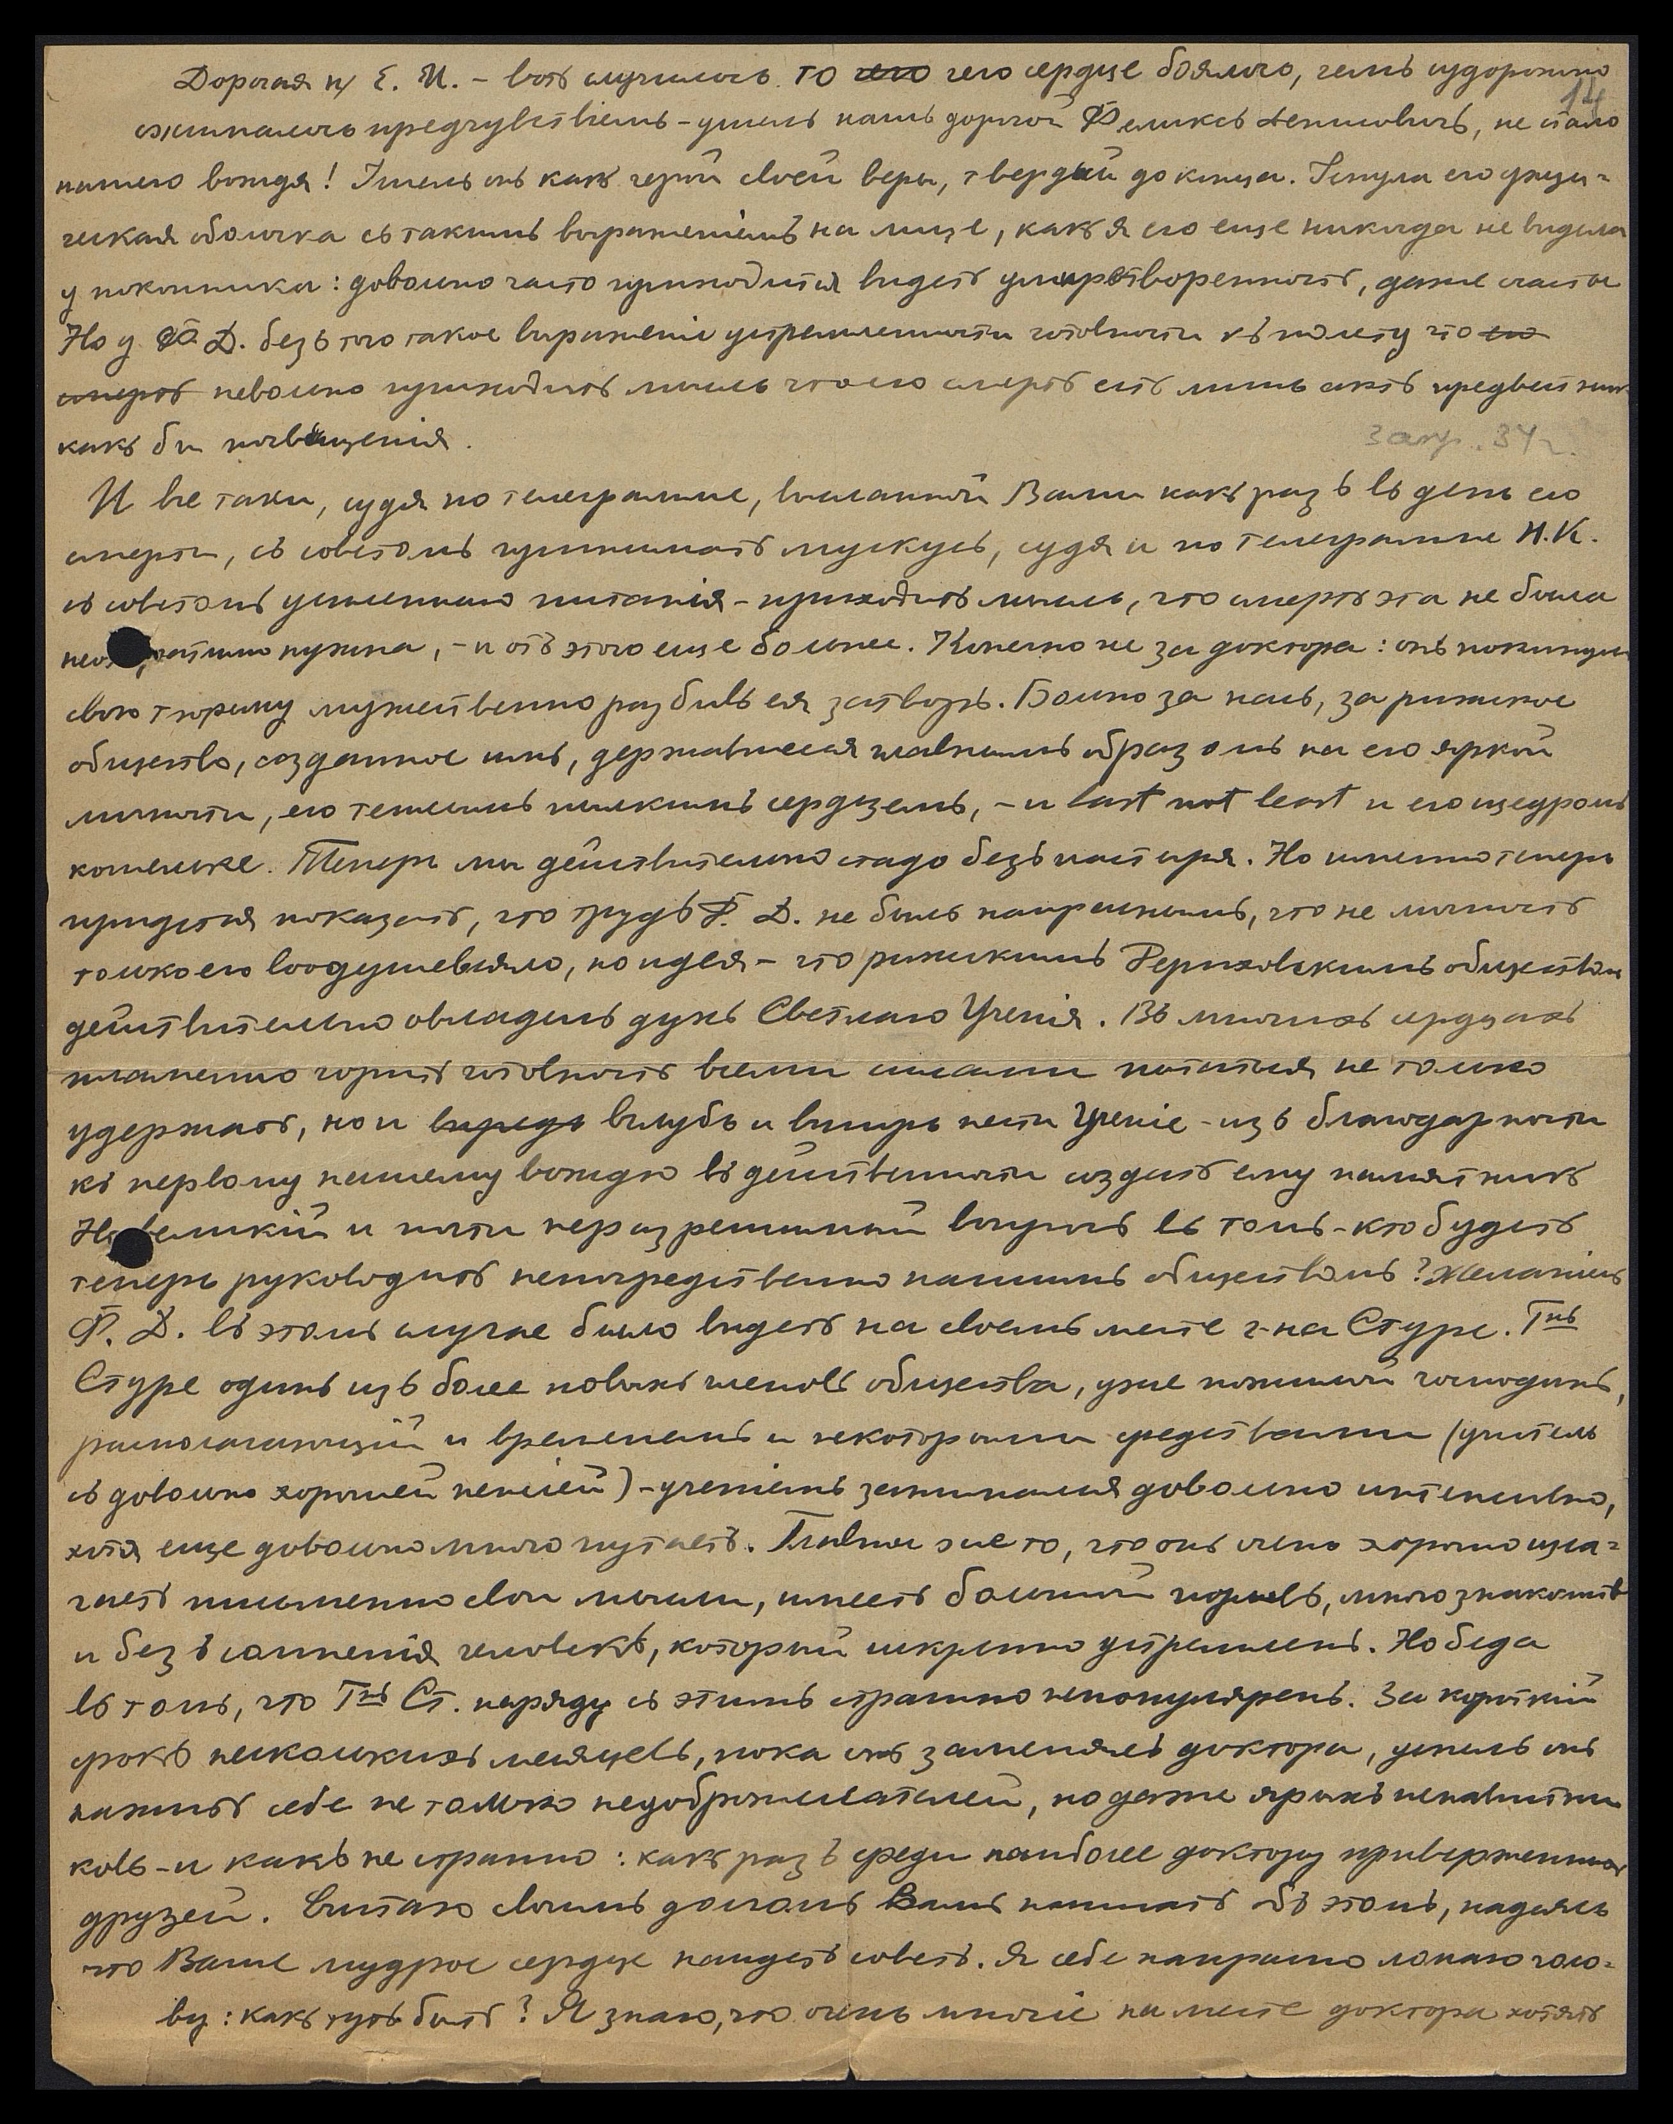 Дорогая н/ Е. И. – вотъ случилось то его чего сердце боялось, чемъ судорожно
14
сжималось предчувствiемъ – ушелъ нашъ дорогой Феликсъ Денисовичъ, не стало
нашего вождя! Ушелъ онъ какъ герой своей веры, твердый до конца. Уснула его физи=
ческая оболочка съ такимъ выраженiемъ на лице, какъ я его еще никогда не видела
у покойника: довольно часто приходится видеть умиротворенность, даже счастье
Но у Ф. Д. безъ того такое выраженiе устремленности готовности къ полету что его
смерть невольно приходитъ мысль что его смерть есть лишь актъ
какъ бы посвященiя.
3 апр. 34 г.
И все таки, судя по телеграмме, высланной Вами какъ разъ въ день его
смерти, съ советомъ принимать мускусъ, судя и по телеграмме Н. К.
съ советомъ усиленнаго питанiя – приходитъ мысль, что смерть эта не была
нужна, – и отъ этого еще больнее. Конечно не за доктора: онъ покинулъ
свою тюрьму мужественно разбивъ ея затворъ. Больно за насъ, за рижское
общество, созданное имъ, державшееся главнымъ образомъ на его яркой
личности, его теплымъ мягкимъ сердцемъ, – и last not least и его щедромъ
кошельке. Теперь мы действительно стадо безъ пастыря. Но именно теперь
придется показать, что трудъ Ф. Д. не былъ напраснымъ, что не личность
только его воодушевляло, но идея – что рижскимъ Рериховскимъ обществомъ
действительно овладелъ духъ Светлаго Ученiя. Въ многихъ сердцахъ
пламенно горитъ готовность всеми силами пытаться не только
удержать, но и впредь вглубь и вширь нести Ученiе – изъ благодарности
къ первому нашему вождю въ действенности создать ему памятникъ
Но великiй и почти неразрешимый вопросъ въ томъ – кто будетъ
теперь руководить непосредственно нашимъ обществомъ? Желанiемъ
Ф. Д. въ этомъ случае было видеть на своемъ месте г-на Стуре. Гнъ
Стуре одинъ изъ более новыхъ членовъ общества, уже пожилой господинъ,
располагающiй и временемъ и некоторыми средствами (учитель
съ довольно хорошей пенсiей) – ученiемъ занимался довольно интенсивно,
хотя еще довольно много путаетъ. Главное же то, что онъ очень хорошо изла=
гаетъ письменно свои мысли, имеетъ большой порывъ, много знакомствъ
и безъ сомненiя человекъ, который искренно устремленъ. Но беда
въ томъ, что Гнъ Ст. наряду съ этимъ страшно непопуляренъ. За короткiй
срокъ несколькихъ месяцевъ, пока онъ заменялъ доктора, успелъ онъ
нажить себе не только недоброжелателей, но даже ярыхъ ненавистни
ковъ – и какъ не странно: какъ разъ среди наиболее доктору приверженныхъ
друзей. Считаю своимъ долгомъ Вамъ написать объ этомъ, надеясь
что Ваше мудрое сердце найдетъ советъ. Я себе напрасно ломаю голо=
ву: какъ тутъ быть? Я знаю, что очень многiе на месте доктора хотятъ